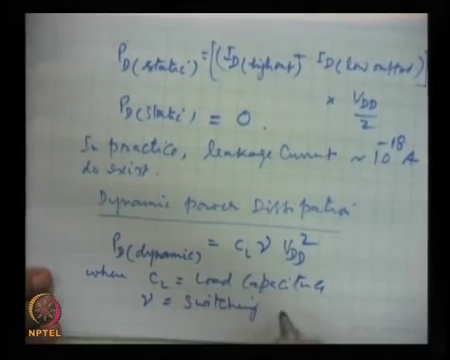 P_D(static) = [(I_D(high out) + I_D(low output)]
× V_DD / 2
P_D(static) = 0.
In practice, leakage current ~ 10^-18 A
do exist.
Dynamic power Dissipation
P_D(dynamic) = C_L ν V_DD^2
where C_L = Load Capacitance
ν = Switching
NPTEL